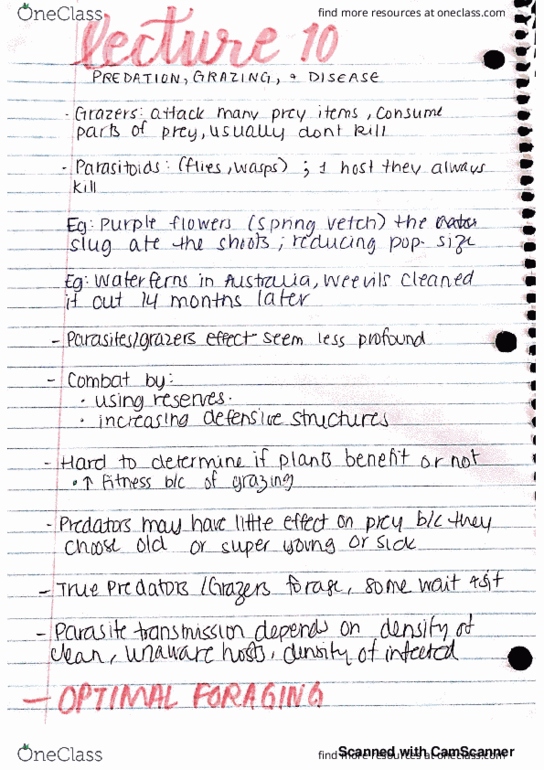 OneClass
find more resources at oneclass.com
lecture 10
PREDATION, GRAZING, + DISEASE
· Grazers: attack many prey items, consume
parts of prey, usually dont kill
· Parasitoids: (flies, wasps) ; 1 host they always
kill
Eg: Purple flowers (spring vetch) the
slug ate the shoots; reducing pop. size
Eg: Waterferns in Australia, weevils cleaned
it out 14 months later
- Parasites/grazers effect seem less profound
- Combat by:
· using reserves.
· increasing defensive structures
- Hard to determine if plants benefit or not
· ↑ fitness b/c of grazing
- Predators may have little effect on prey b/c they
choose old or super young or sick
- True Predators / Grazers forage, some wait + sit
- Parasite transmission depends on density of
clean, unaware hosts, density of infected
- OPTIMAL FORAGING
OneClass
find more resources at oneclass.com
Scanned with CamScanner